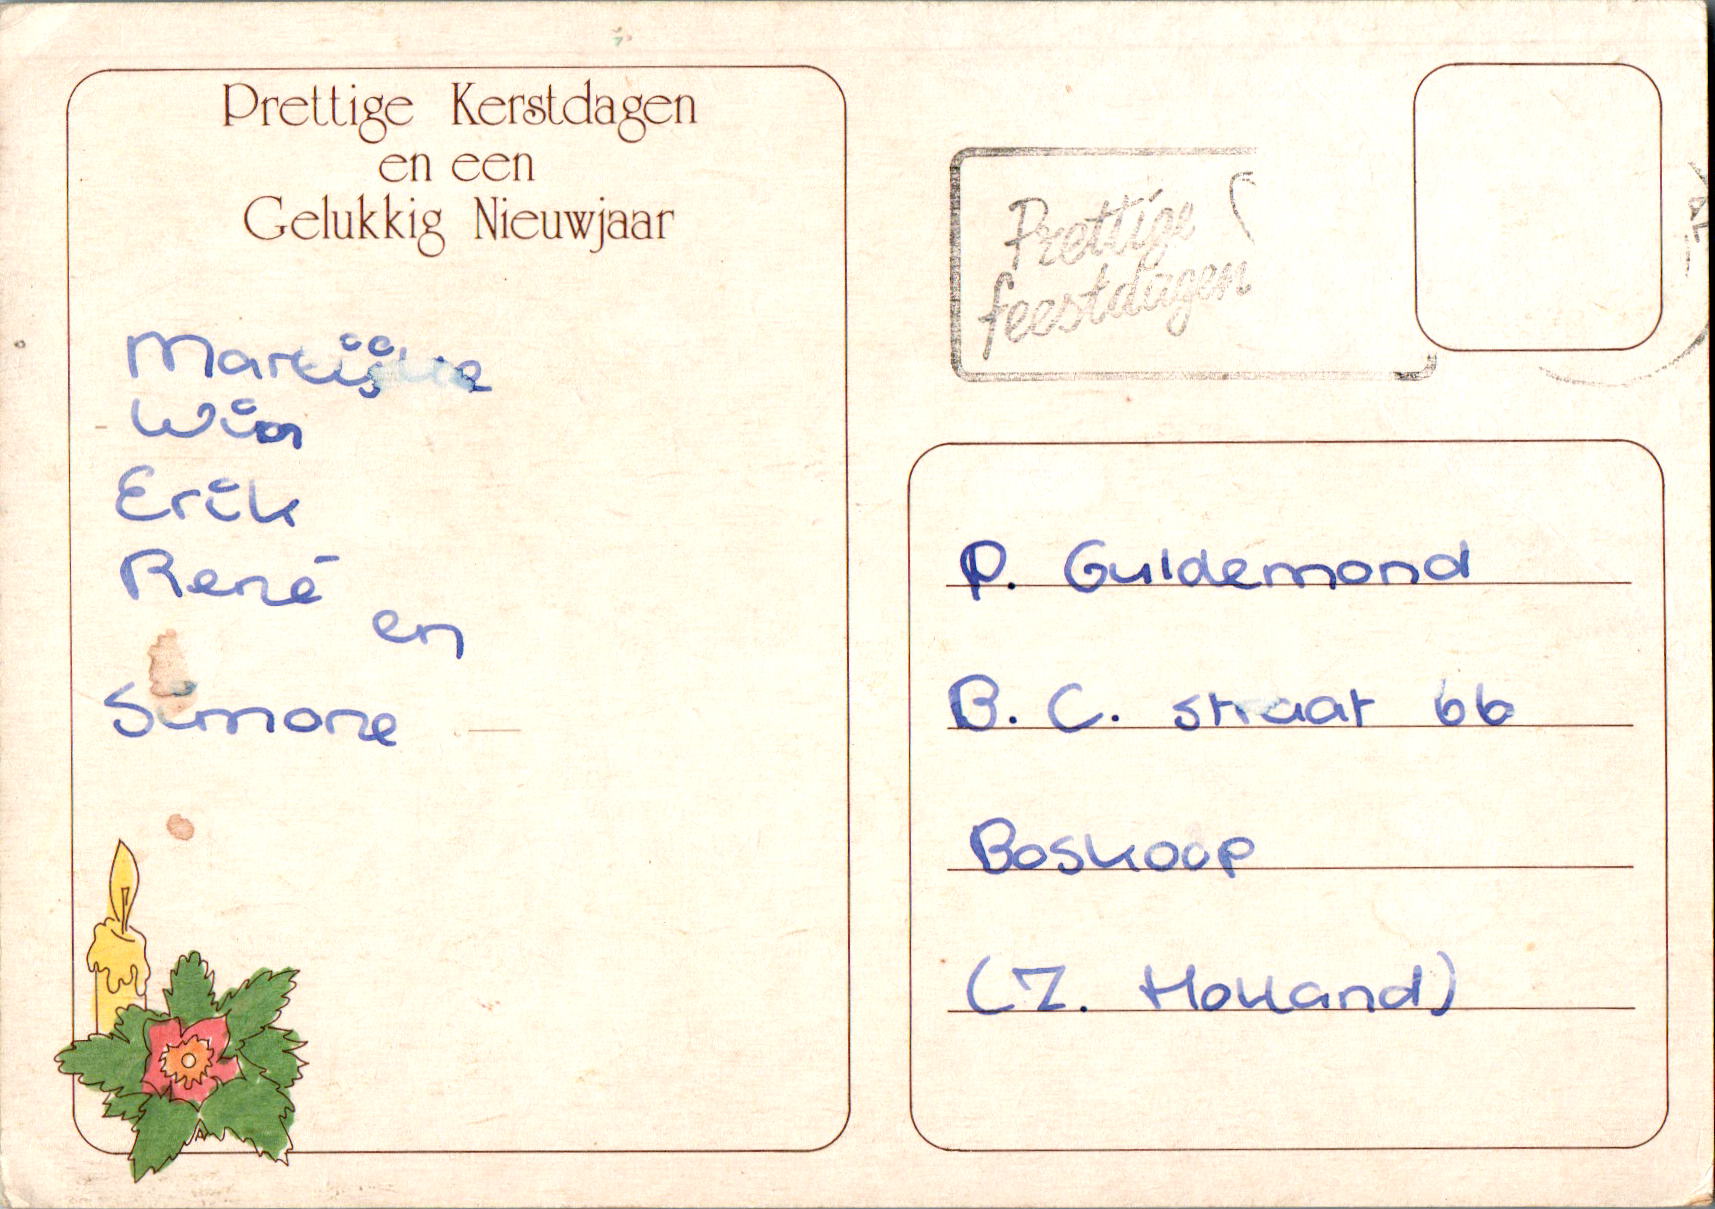 Prettige Kerstdagen
en een
Gelukkig Nieuwjaar
Wim
Erik
René
en
Simone
Prettige
feestdagen
P. Guldemond
B. C. straat 66
Boskoop
(Z. Holland)